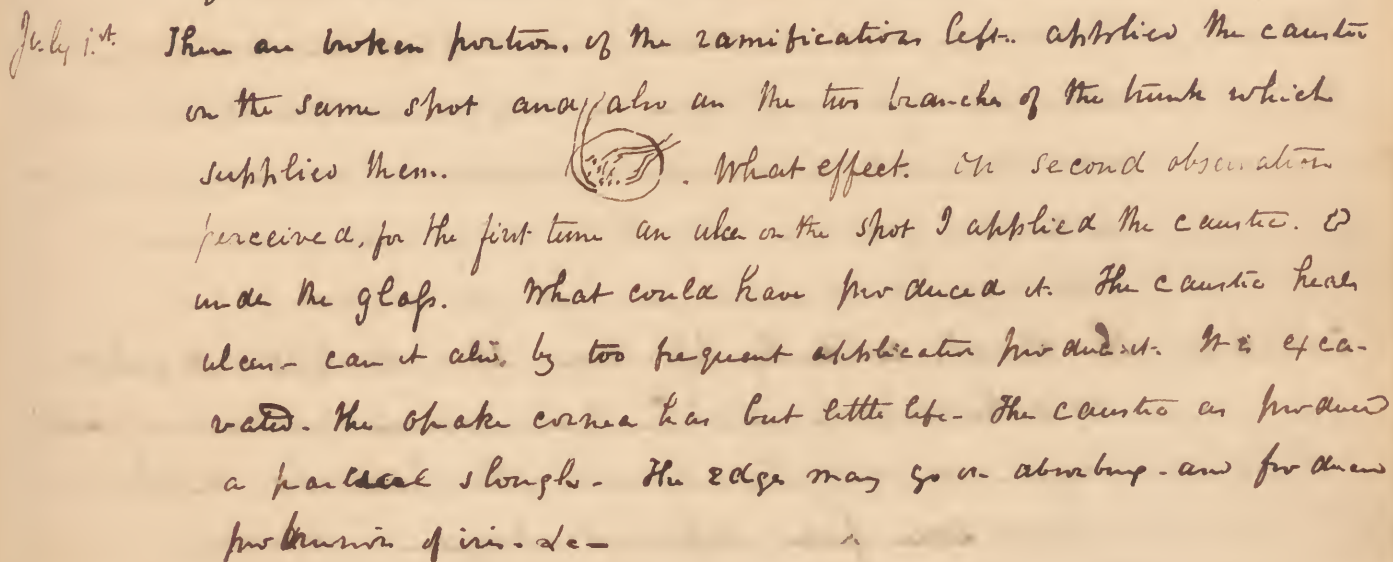 July 1.st There are broken portions of the ramifications left. applied the caustic
on the same spot and also on the two branches of the trunk which
supplied them. . What effect. On second observation
perceived, for the first time an ulcer on the spot I applied the caustic. &
under the glass. What could have produced it. The caustic heals
ulcers - can it also, by too frequent application produce it. It is exca-
vated. The opake cornea has but little life - The caustic as produced
a partial slough - The edges may go on absorbing - and produced
protrusion of iris - &c -